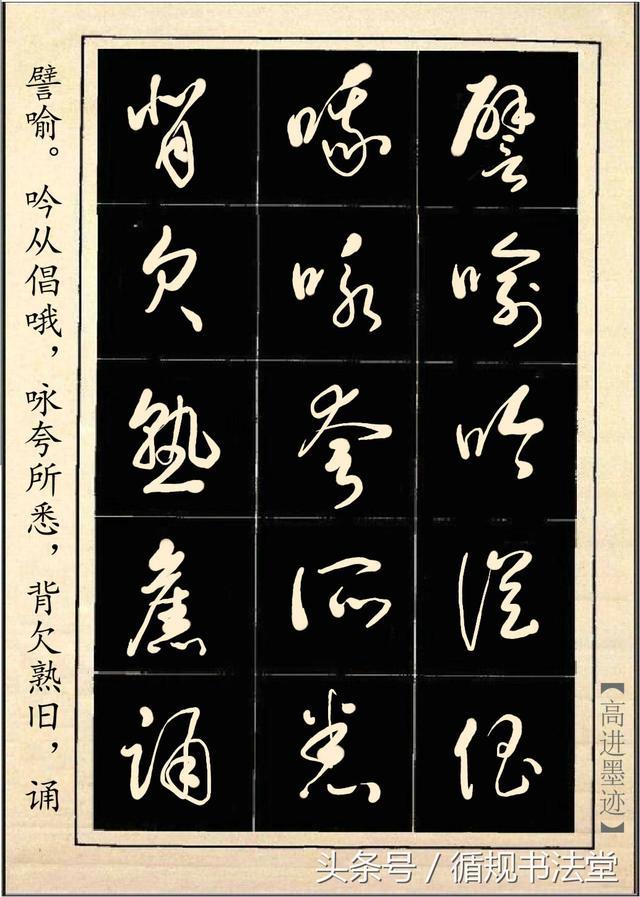 譬喻吟从倡
哦咏夸所悉
背欠熟旧诵
譬喻。吟从倡哦，咏夸所悉，背欠熟旧，诵
【高进墨迹】
头条号 / 循规书法堂